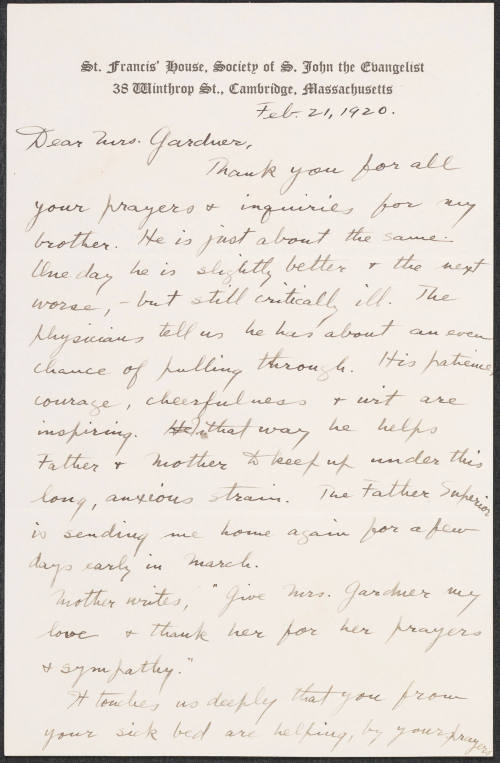 St. Francis' House, Society of S. John the Evangelist
38 Winthrop St., Cambridge, Massachusetts
Feb. 21, 1920.
Dear Mrs. Gardner,
Thank you for all
your prayers & inquiries for my
brother. He is just about the same.
One day he is slightly better & the next
worse, – but still critically ill. The
physicians tell us he has about an even
chance of pulling through. His patience,
courage, cheerfulness & wit are
inspiring. In that way he helps
Father & Mother to keep up under this
long, anxious strain. The Father Superior
is sending me home again for a few
days early in March.
Mother writes, "Give Mrs. Gardner my
love & thank her for her prayers
& sympathy."
It touches us deeply that you from
your sick bed are helping, by your prayers